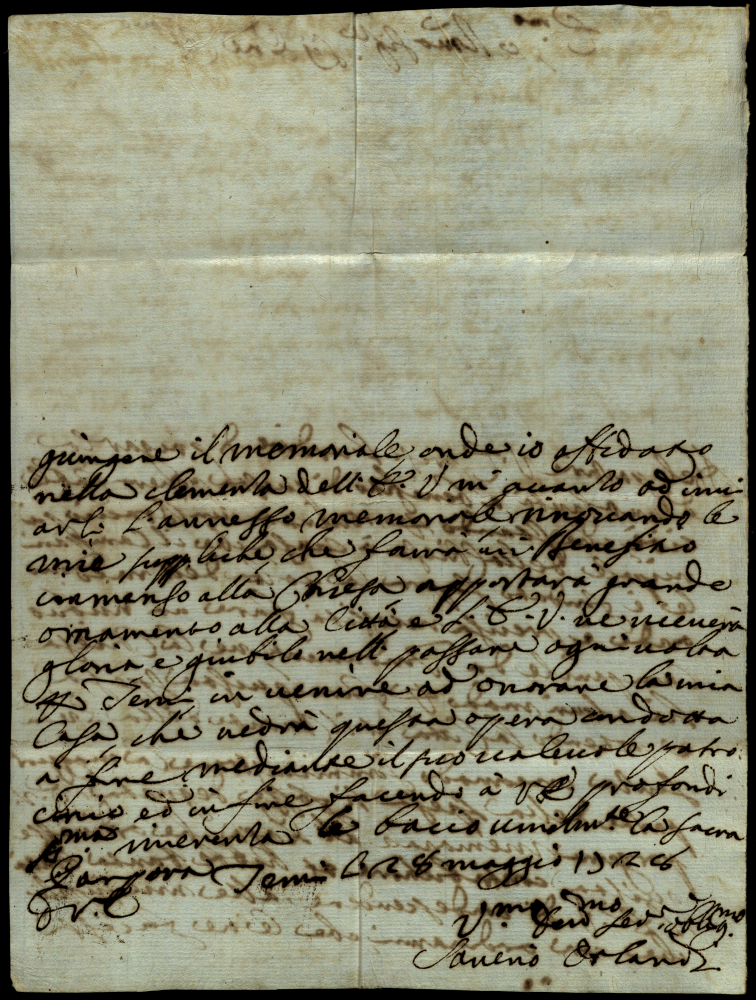 giungere il memoriale, onde io affidato
nella clemenza dell' E. V. m' avanzo ad invi
arli l'annesso memoriale rinovando le
mie suppliche, che farrà un Benefizio
immenso alla Chiesa apportarà grande
ornamento alla Città e l' E. V. ne riceverà
gloria e giubilo nell' passare ogni volta
Terni in venire ad onorare la mia
Casa, che vedrà questa opera condotta
a fine mediante il suo valevole patro
cinio ed in fine facendo à VE profondi
ma riverenza le bacio umilmte la sacra
Porpora Terni li 28 maggio 1728
D. V. E.
V.mo Devmo Serre obligmo
Saverio Orlandi